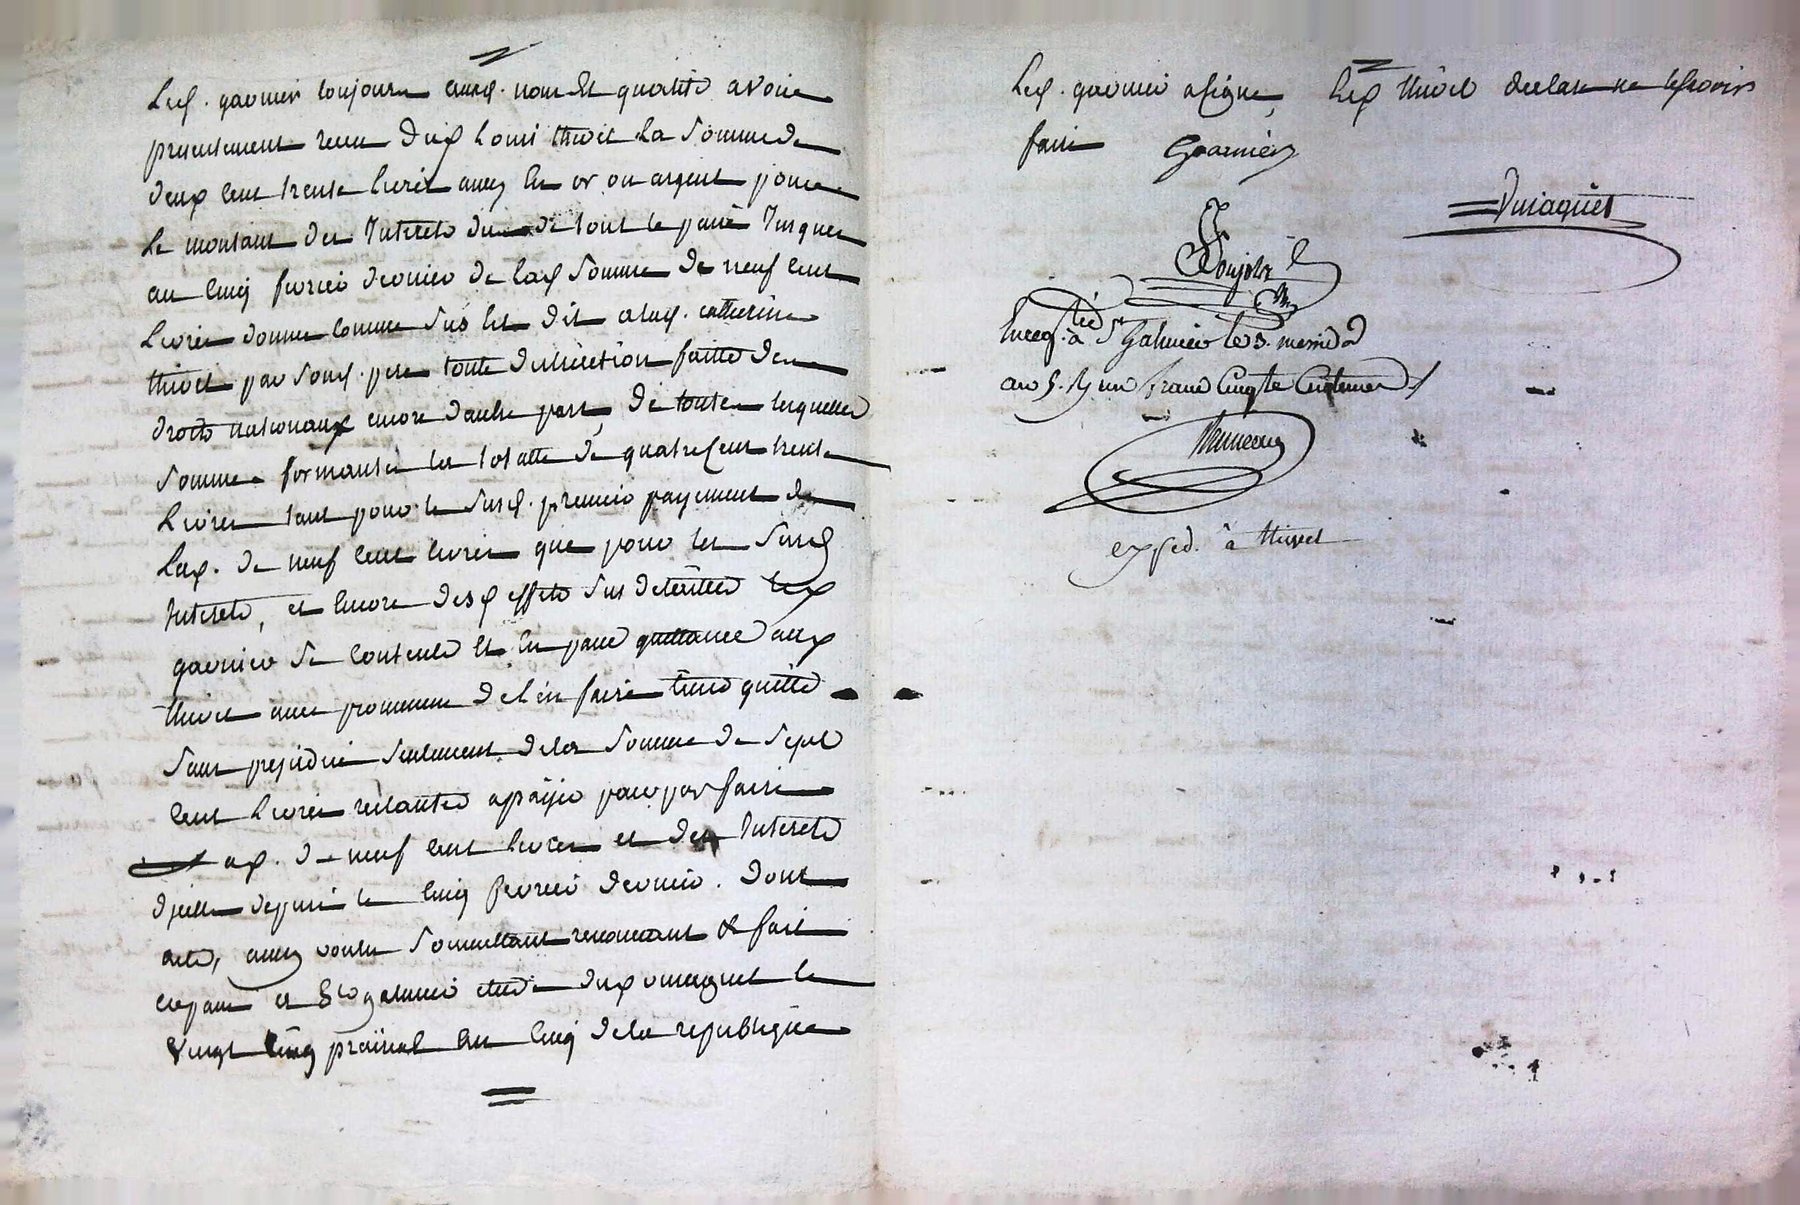 Led. garnier toujours aud. nom et qualité avoir
presentement recu dud Louis thivet la somme de
deux cent trente livres aussy en or ou argent pour
le montant des Interets du de tout le passé Jusques
au cinq fevrier dernier de lad somme de neuf cent
livres donnee comme sus est dit a lad. catherine
thivet par sond. pere toute deduction faitte des
droits nationaux encore d'autre part, de toutes lesquelles
sommes formantes les totalle de quatre cent trente
livres tant pour le susd. premier payement de
lad. de neuf cent livres que pour les susd
Interets, et encore desd effets sus detaillés led
garnier se contente et en passe quittance aud
thivet avec promesse de l'en faire tenir quitte
sans prejudice seulement de la somme de sept
cent livres restante a payer pour parfaire
ad. de neuf cent livres et des Interets
d'icelle depuis le cinq fevrier dernier. Dont
acte, aussy voulu soumettant renoncant & fait
et passé a St galmier etude dud vuraguet le
vingt cinq prairial an cinq de la republique
Led. garnier a signé, led thivet declare ne le scavoir
faire Garnier
Vuraguet
Soujols
Enreg. tré à St Galmier le 3. messidor
an 5. Rç un franc cinqte centimes
exped. à thivet